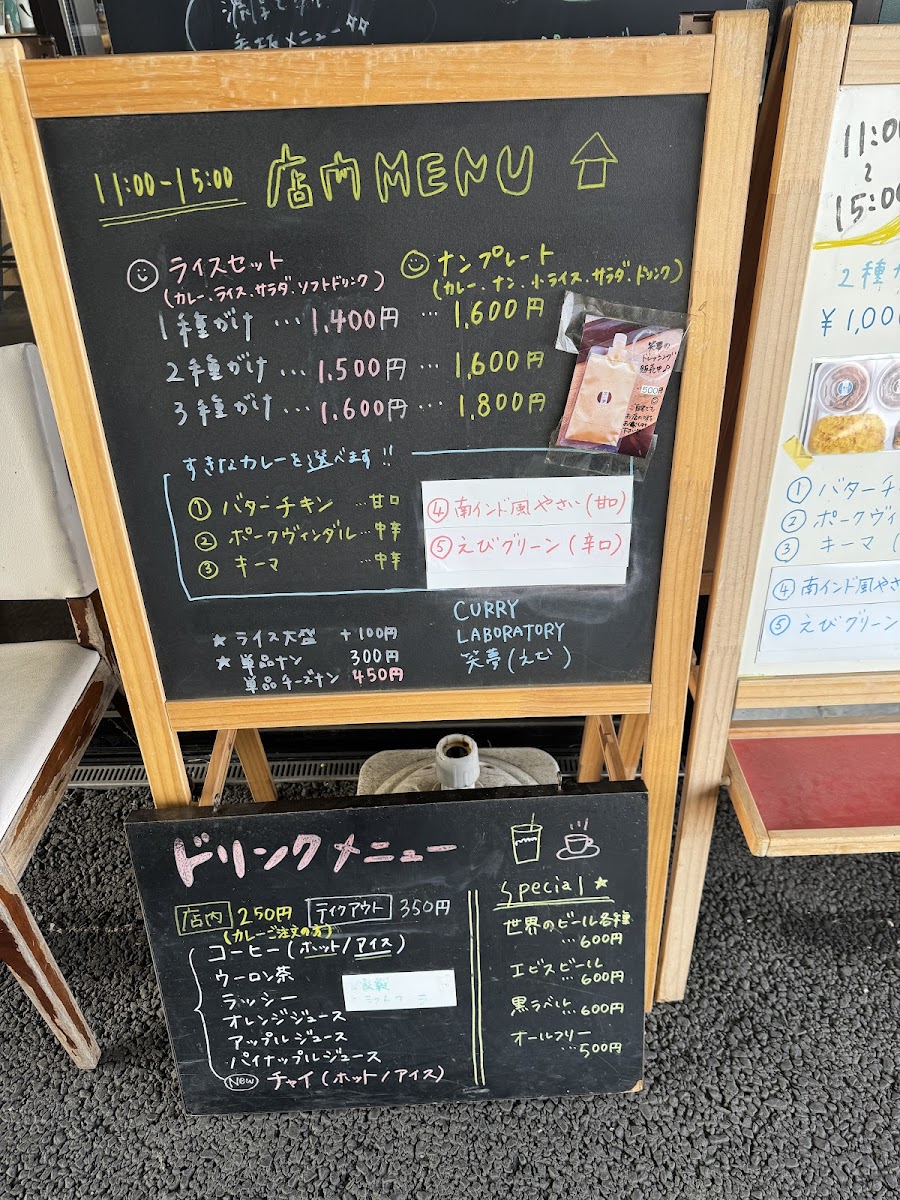 11:00-15:00 店内MENU
ライスセット
(カレー、ライス、サラダ、ソフトドリンク)
ナンプレート
(カレー、ナン、小ライス、サラダ、ドリンク)
1種がけ…1,400円…1,600円
2種がけ…1,500円…1,600円
3種がけ…1,600円…1,800円
笑夢の
ドレッシング
販売中♪
500円
すきなカレーを選べます!!
① バターチキン…甘口
② ポークヴィンダル…中辛
③ キーマ…中辛
④南インド風やさい(甘口)
⑤えびグリーン(辛口)
★ライス大盛 +100円
★単品ナン 300円
単品チーズナン 450円
CURRY
LABORATORY
笑夢(えむ)
ドリンクメニュー
店内 250円 テイクアウト 350円
(カレーご注文の方)
コーヒー(ホット/アイス)
ウーロン茶
ラッシー
オレンジジュース
アップルジュース
パイナップルジュース
New チャイ(ホット/アイス)
Special★
世界のビール各種
…600円
エビスビール
…600円
黒ラベル…600円
オールフリー
…500円
11:00
〜
15:00
2種
¥1,00
① バターチ
② ポークヴィ
③ キーマ(
④南インド風やさ
⑤えびグリーン